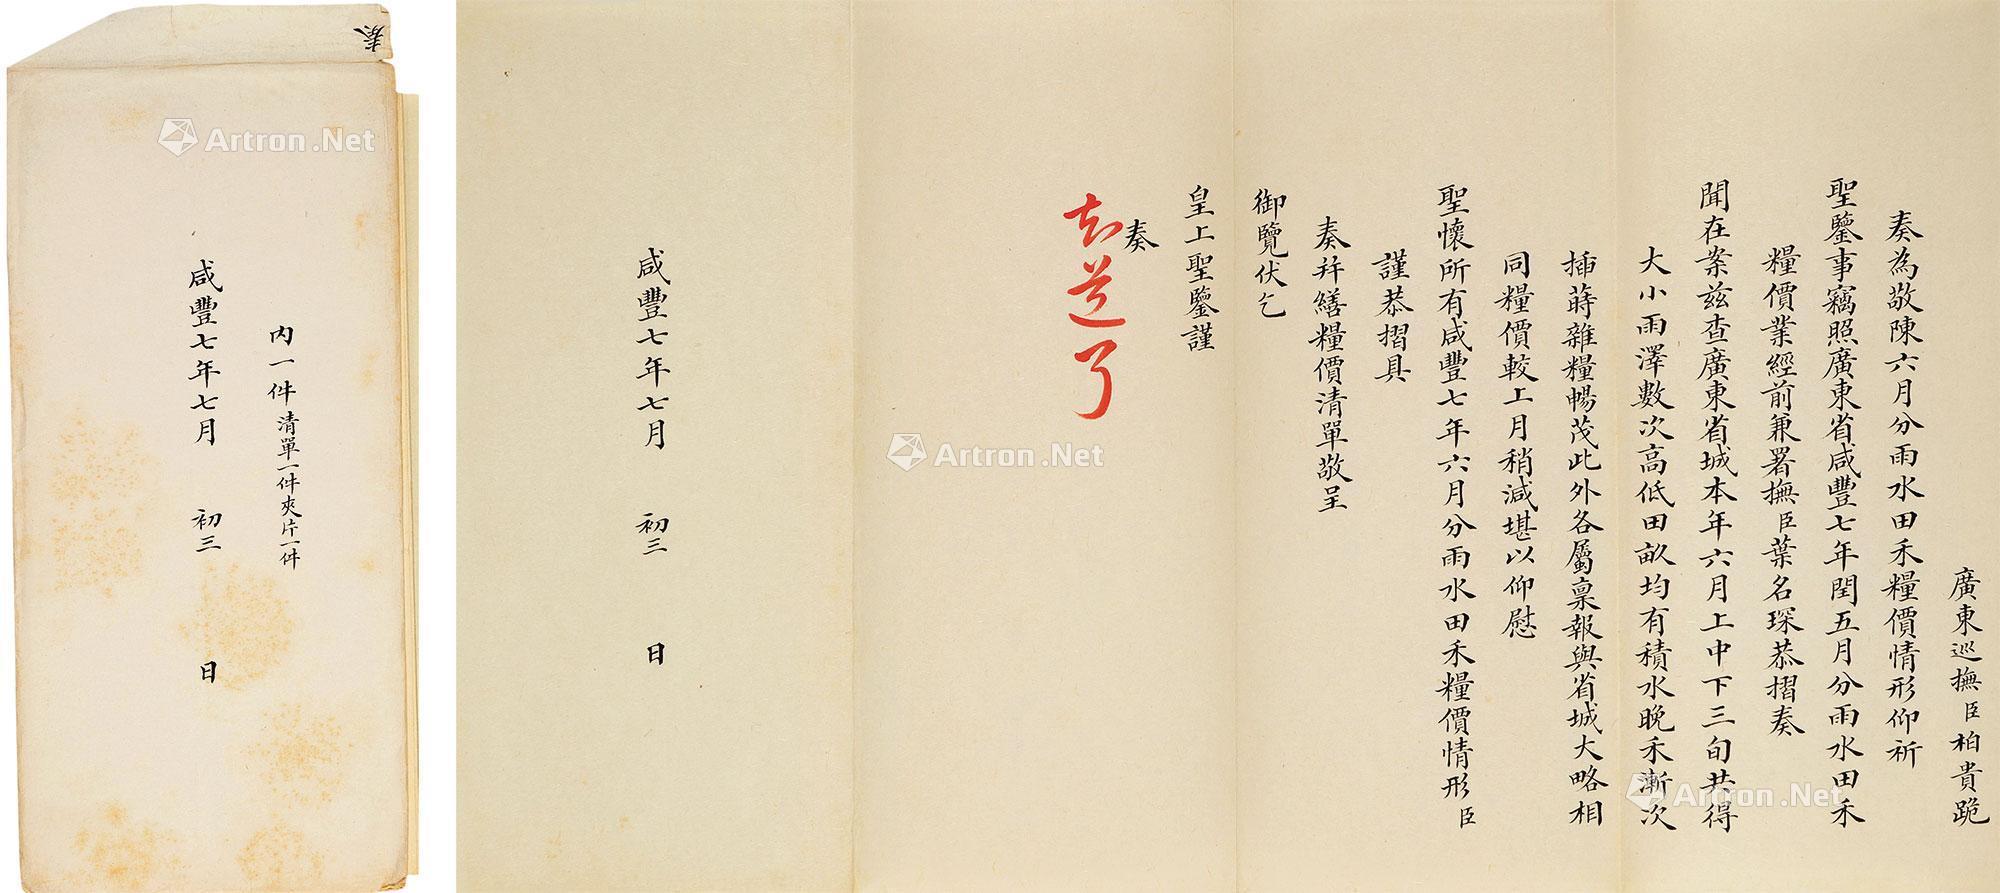 奏
内一件清單一件夾片一件
咸豐七年七月 初三 日
廣東巡撫臣柏貴跪
奏為敬陳六月分雨水田禾糧價情形仰祈
聖鑒事竊照廣東省咸豐七年閏五月分雨水田禾
糧價業經前兼署撫臣葉名琛恭摺奏
聞在案茲查廣東省城本年六月上中下三旬共得
大小雨澤數次高低田畝均有積水晚禾漸次
插蒔雜糧暢茂此外各屬稟報與省城大略相
同糧價較上月稍減堪以仰慰
聖懷所有咸豐七年六月分雨水田禾糧價情形臣
謹恭摺具
奏并繕糧價清單敬呈
御覽伏乞
皇上聖鑒謹
奏
知道了
咸豐七年七月 初三 日
Artron.Net
Artron.Net
Artron.Net